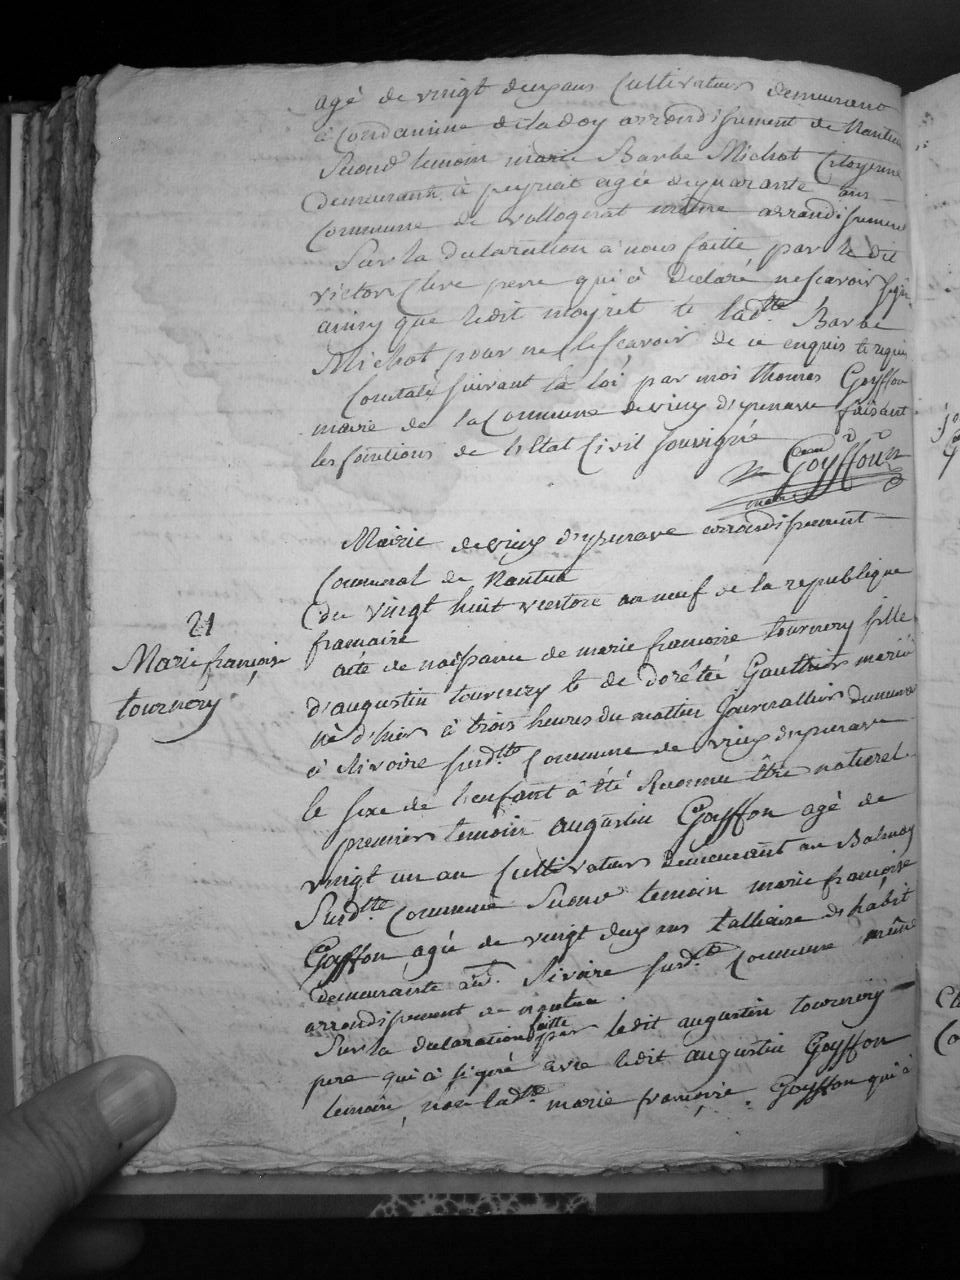 agé de vingt deux ans Cultivateur demeurant
a Condamine de la doy arrondissement de Nantua
Second temoin marie Barbe Michot Citoyenne
demeurante à peyriat agée de quarante ans
Commune de vollognat même arrondissement
Sur la declaration à nous faitte par le dit
victor Clere pere qui à declaré ne scavoir signer
ainsy que ledit moyret te ladtte Barbe
Michot pour ne scavoir de ce enquis te requis
Constaté suivant la loi par moi thomas Goyffon
maire de la Commune de vieux d'yzenave faisant
les fonctions de l'Etat Civil sousigné
Goyffon
maire
Mairie de vieux d'yzenave arrondissement
Communal de Nantua
Du vingt huit ventose an neuf de la republique
francaise
21
Marie françoise
tournery
acte de naissance de marie francoise tournery fille
d'augustin tournery te de dorotée Gauthier marié
né d'hier à trois heures du mattin demeurant
à Sivoire susdtte Commune de vieux d'yzenave
le sexe de l'enfant à été Reconnu être naturel
premier temoin augustin Goyffon agé de
vingt un an Cultivateur demeurant au Balmay
Susdtte Commune Second temoin marie françoise
Goyffon agée de vingt deux ans tallieuse d'habit
demeurante aud. Sivoire susdtte Commune même
arrondissement de nantua.
Sur la declaration faitte par ledit augustin tournery
pere qui à signé avec ledit augustin Goyffon
temoin, non ladtte marie françoise Goyffon qui à